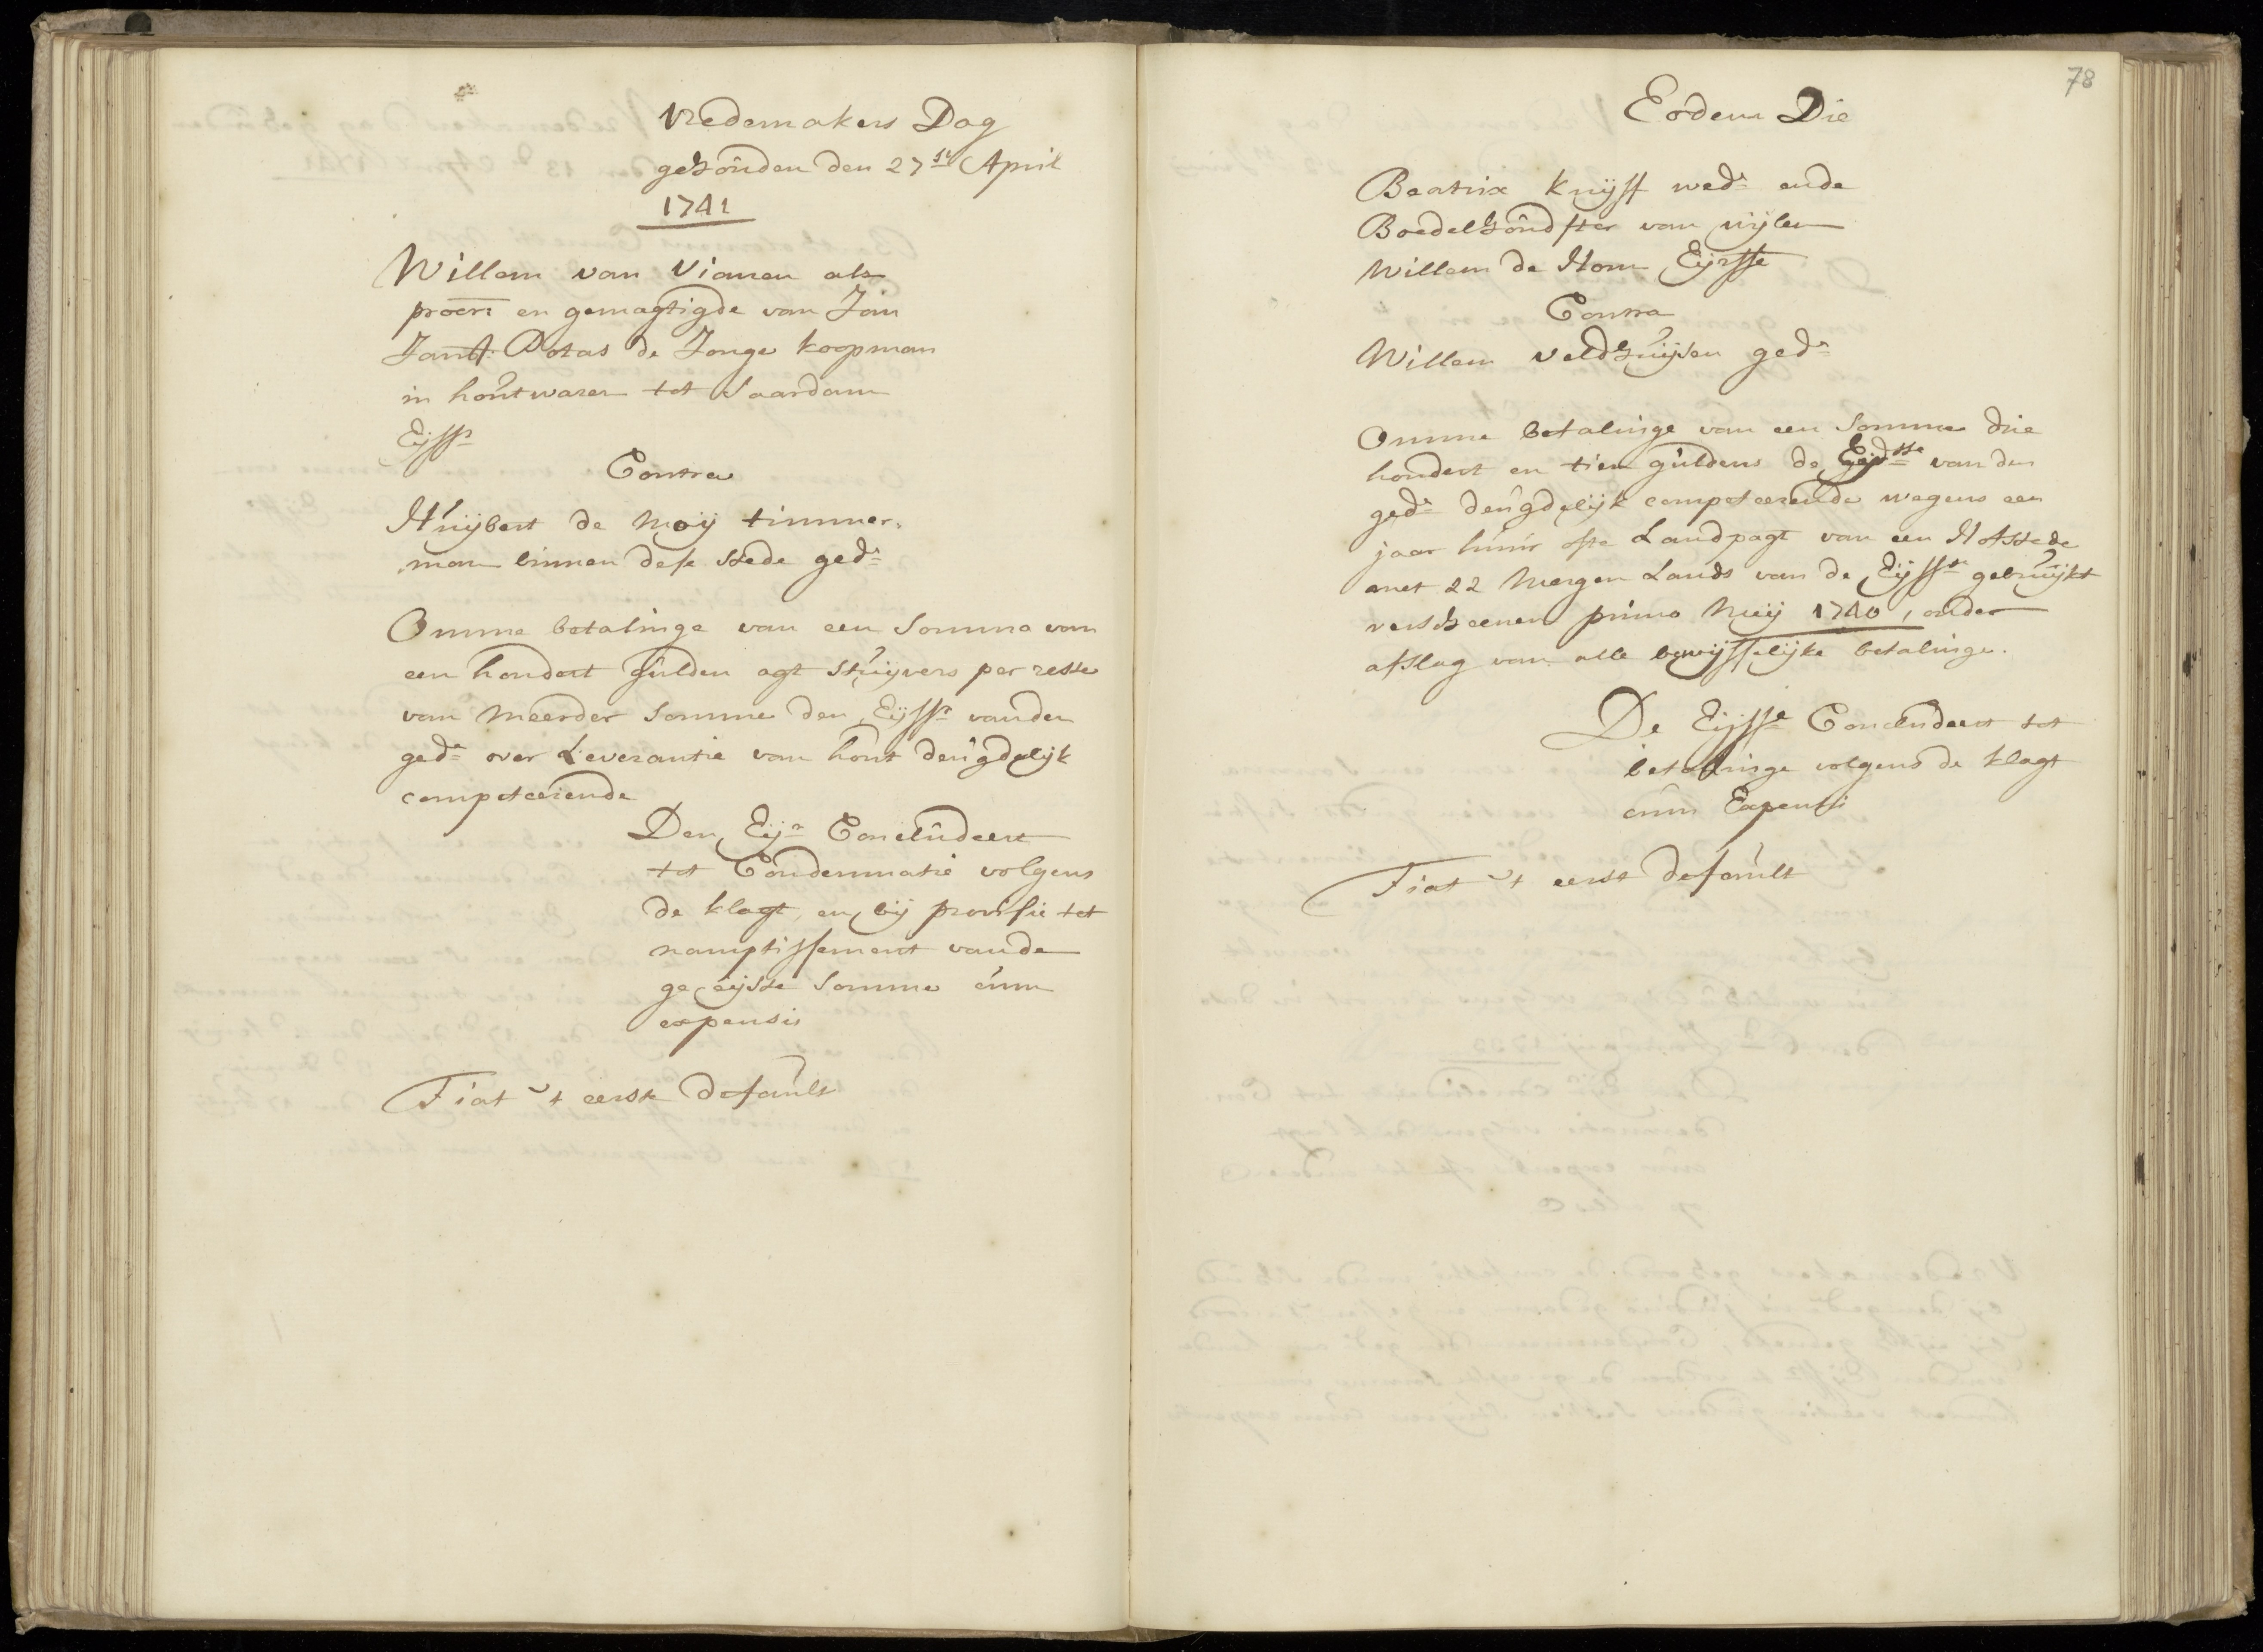 Vredemakers Dag
gehouden den 27ste April
1741
Willem van Vianen als
procr: en gemagtigde van Jan
Jansz: Rotas de Jonge koopman
in houtwaren tot Saardam
Eijssr
Contra
Huijbert de Moij timmer-
man binnen dese stede gede
Omme betalinge van een Somma van
een hondert gulden agt stuijvers per reste
van meerder Somme den Eijssr vanden
gede over Leverantie van hout deugdelijk
competeerende
Den Eijr Concludeert
tot Condemnatie volgens
de klagt, en bij provisie tot
namptissement vande
geeijste Somme cum
expensis
Fiat 't eerste default
78
Eodem Die
Beatrix Knijff wede ende
Boedelhoudster van wijlen
Willem de Hom Eijssse
Contra
Willem Veldhuijsen gede
Omme betalinge van een Somme drie
hondert en tien guldens de Eijsse van den
gede deugdelijk competeerende wegens een
jaar huur ofte Landpagt van een Hofstede
met 22 Mergen Lands van de Eijsse gebruijkt
verscheenen primo Meij 1740, onder
afslag van alle bewijsselijke betalinge.
De Eijsse Concludeert tot
betalinge volgens de klagt
cum Expensis
Fiat 't eerst default